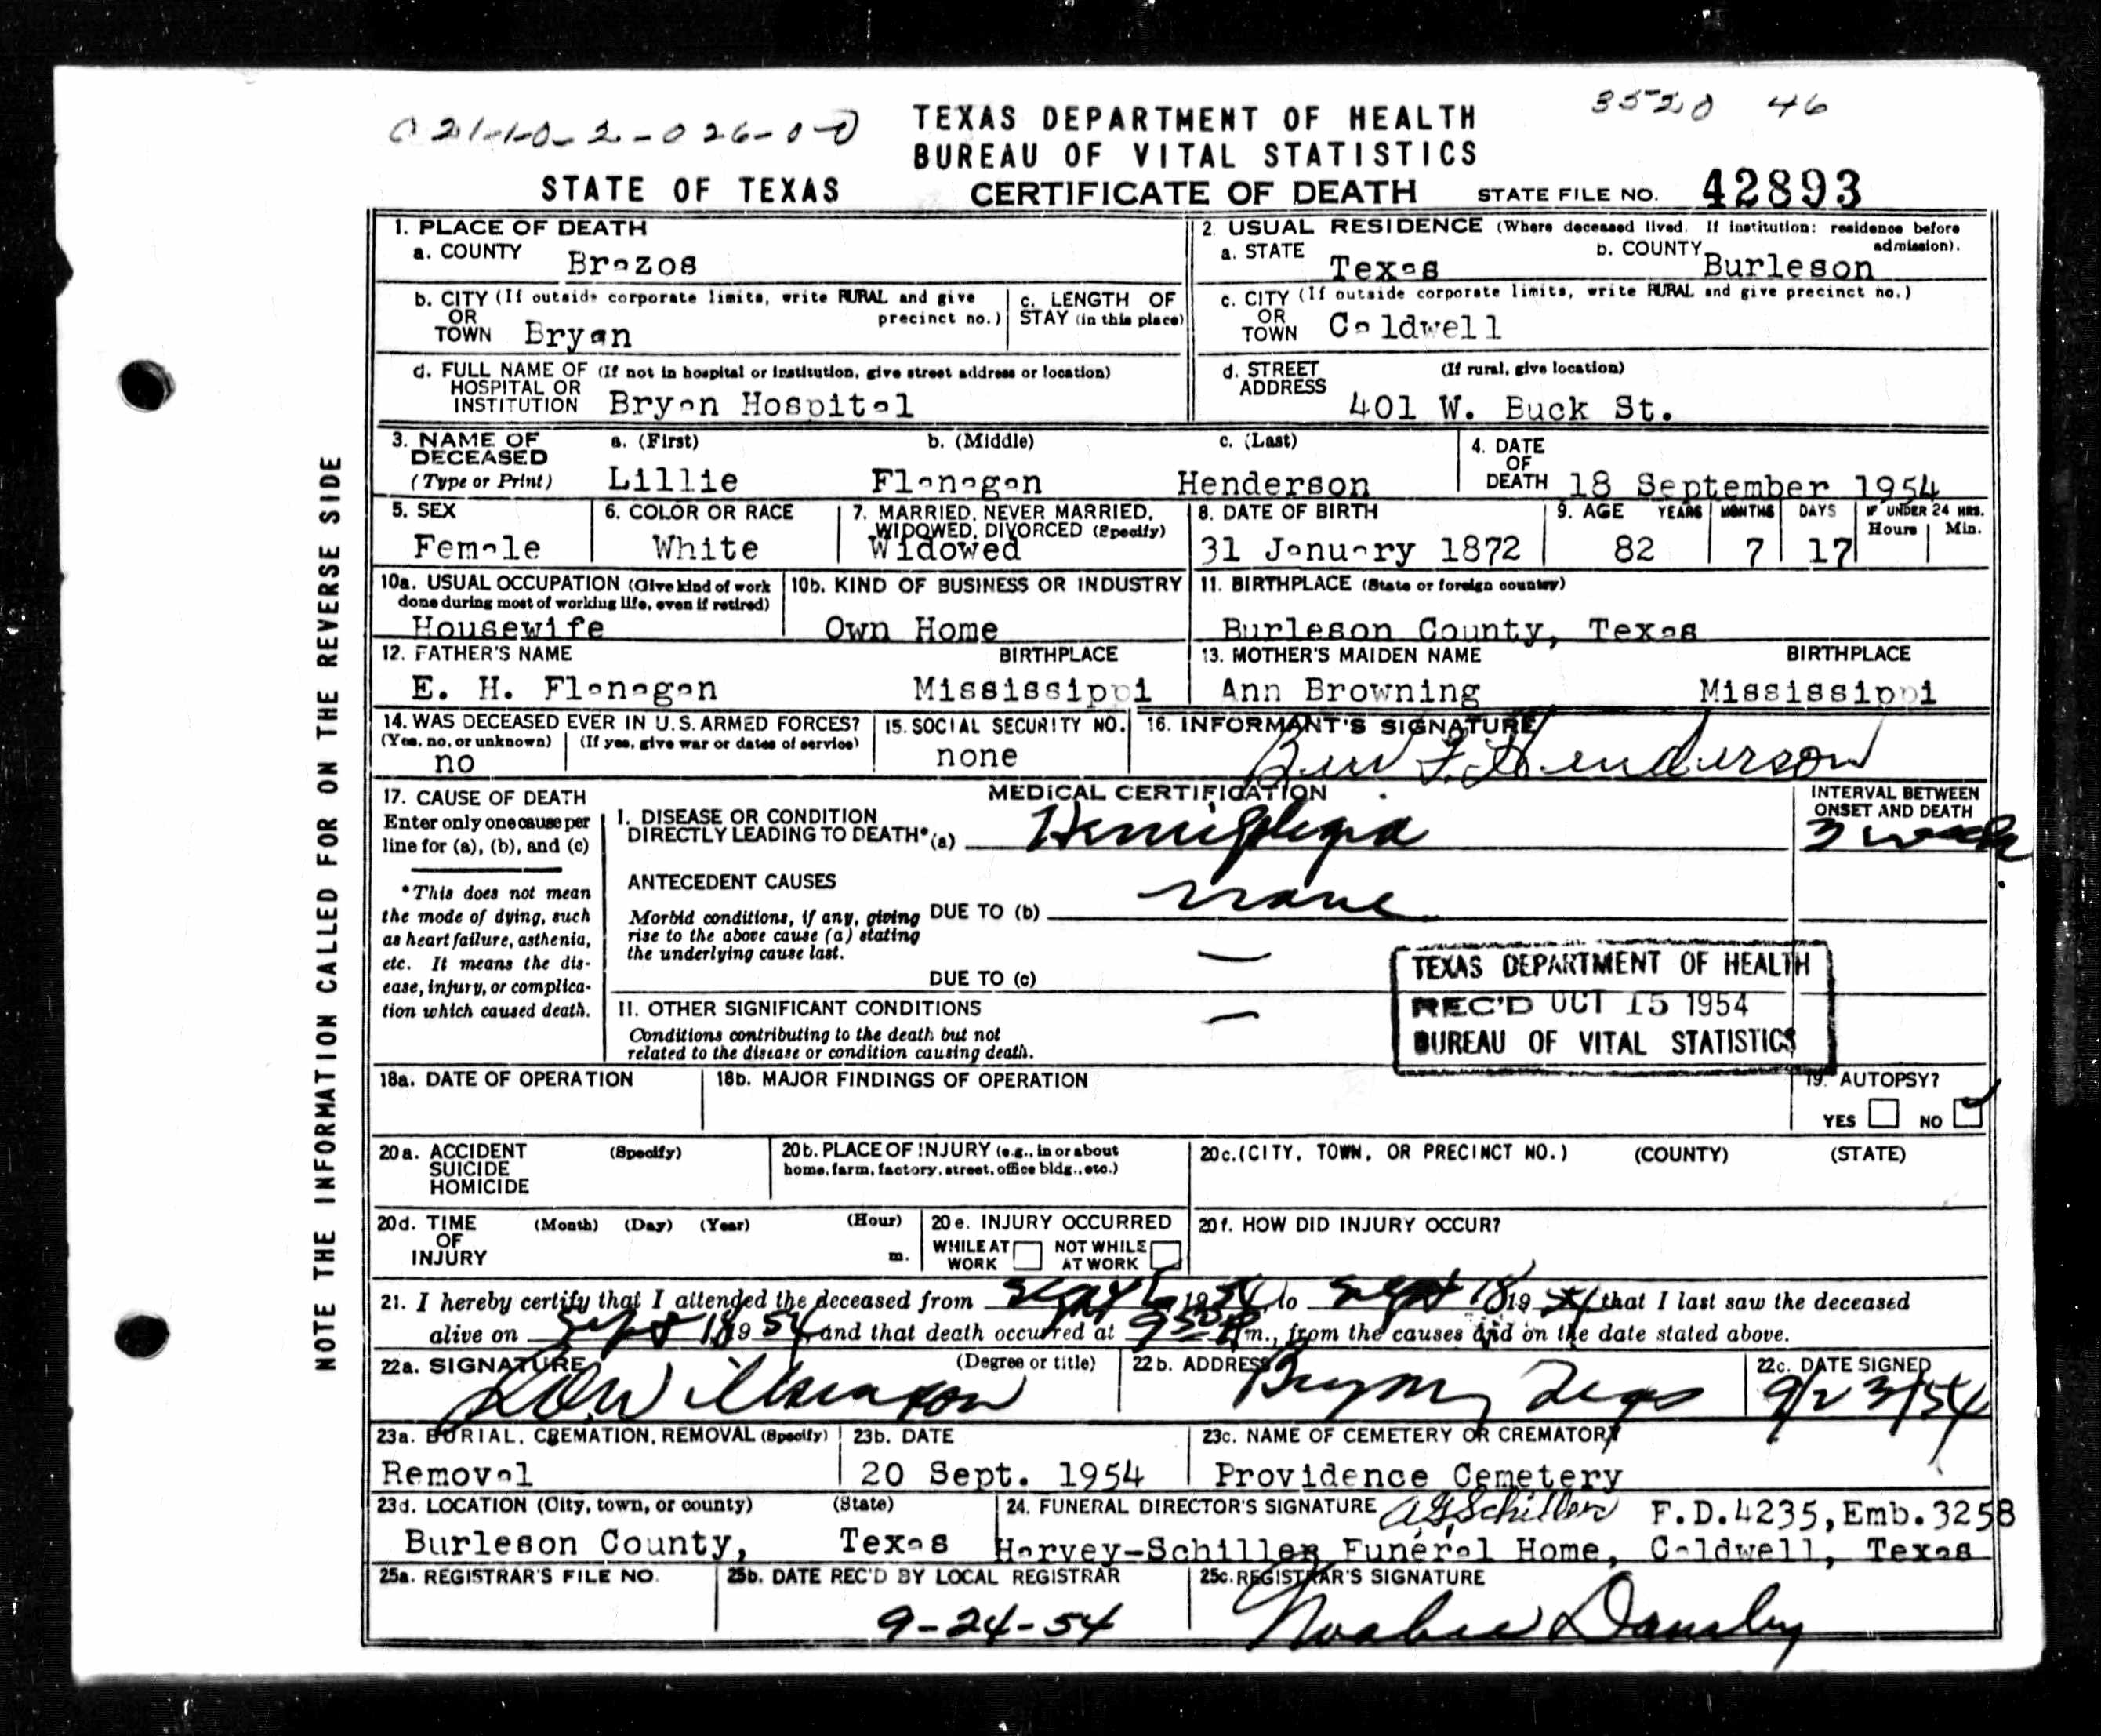 021-10-2-026-0-0
3520 46
TEXAS DEPARTMENT OF HEALTH
BUREAU OF VITAL STATISTICS
STATE OF TEXAS CERTIFICATE OF DEATH STATE FILE NO. 42893
NOTE THE INFORMATION CALLED FOR ON THE REVERSE SIDE
1. PLACE OF DEATH
a. COUNTY Brazos
2. USUAL RESIDENCE (Where deceased lived. If institution: residence before admission).
a. STATE Texas b. COUNTY Burleson
b. CITY (If outside corporate limits, write RURAL and give precinct no.)
OR
TOWN Bryan
c. LENGTH OF
STAY (in this place)
c. CITY (If outside corporate limits, write RURAL and give precinct no.)
OR
TOWN Caldwell
d. FULL NAME OF (If not in hospital or institution, give street address or location)
HOSPITAL OR
INSTITUTION Bryan Hospital
d. STREET (If rural, give location)
ADDRESS
401 W. Buck St.
3. NAME OF a. (First) b. (Middle) c. (Last)
DECEASED
(Type or Print) Lillie Flanagan Henderson
4. DATE
OF
DEATH 18 September 1954
5. SEX
Female
6. COLOR OR RACE
White
7. MARRIED, NEVER MARRIED,
WIDOWED, DIVORCED (Specify)
Widowed
8. DATE OF BIRTH
31 January 1872
9. AGE YEARS MONTHS DAYS IF UNDER 24 HRS.
Hours Min.
82 7 17
10a. USUAL OCCUPATION (Give kind of work
done during most of working life, even if retired)
Housewife
10b. KIND OF BUSINESS OR INDUSTRY
Own Home
11. BIRTHPLACE (State or foreign country)
Burleson County, Texas
12. FATHER'S NAME BIRTHPLACE
E. H. Flanagan Mississippi
13. MOTHER'S MAIDEN NAME BIRTHPLACE
Ann Browning Mississippi
14. WAS DECEASED EVER IN U.S. ARMED FORCES?
(Yes, no, or unknown) (If yes, give war or dates of service)
no
15. SOCIAL SECURITY NO.
none
16. INFORMANT'S SIGNATURE
F. Henderson
17. CAUSE OF DEATH
Enter only one cause per
line for (a), (b), and (c)
*This does not mean
the mode of dying, such
as heart failure, asthenia,
etc. It means the dis-
ease, injury, or complica-
tion which caused death.
MEDICAL CERTIFICATION
I. DISEASE OR CONDITION
DIRECTLY LEADING TO DEATH* (a) Hemiplegia
INTERVAL BETWEEN
ONSET AND DEATH
3 weeks
ANTECEDENT CAUSES
Morbid conditions, if any, giving
rise to the above cause (a) stating
the underlying cause last.
DUE TO (b) none
DUE TO (c) —
II. OTHER SIGNIFICANT CONDITIONS —
Conditions contributing to the death but not
related to the disease or condition causing death.
TEXAS DEPARTMENT OF HEALTH
REC'D OCT 15 1954
BUREAU OF VITAL STATISTICS
18a. DATE OF OPERATION
18b. MAJOR FINDINGS OF OPERATION
19. AUTOPSY?
YES NO
20a. ACCIDENT (Specify)
SUICIDE
HOMICIDE
20b. PLACE OF INJURY (e.g., in or about
home, farm, factory, street, office bldg., etc.)
20c. (CITY, TOWN, OR PRECINCT NO.) (COUNTY) (STATE)
20d. TIME (Month) (Day) (Year) (Hour)
OF
INJURY m.
20e. INJURY OCCURRED
WHILE AT NOT WHILE
WORK AT WORK
20f. HOW DID INJURY OCCUR?
21. I hereby certify that I attended the deceased from Sept 1954, to Sept 18 1954 that I last saw the deceased
alive on Sept 18 1954, and that death occurred at 930 P m., from the causes and on the date stated above.
22a. SIGNATURE (Degree or title)
Wilkerson
22b. ADDRESS
Bryan, Texas
22c. DATE SIGNED
9/23/54
23a. BURIAL, CREMATION, REMOVAL (Specify)
Removal
23b. DATE
20 Sept. 1954
23c. NAME OF CEMETERY OR CREMATORY
Providence Cemetery
23d. LOCATION (City, town, or county) (State)
Burleson County, Texas
24. FUNERAL DIRECTOR'S SIGNATURE A G Schiller F.D.4235,Emb.3258
Harvey-Schiller Funeral Home, Caldwell, Texas
25a. REGISTRAR'S FILE NO.
25b. DATE REC'D BY LOCAL REGISTRAR
9-24-54
25c. REGISTRAR'S SIGNATURE
Dansby